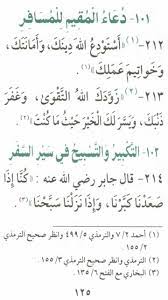 ١٠١- دُعَاءُ الْمُقِيمِ لِلْمُسَافِرِ
٢١٢-(١) «أَسْتَوْدِعُ اللَّهَ دِينَكَ، وَأَمَانَتَكَ،
وَخَوَاتِيمَ عَمَلِكَ»(١).
٢١٣-(٢) «زَوَّدَكَ اللَّهُ التَّقْوَى، وَغَفَرَ
ذَنْبَكَ، وَيَسَّرَ لَكَ الْخَيْرَ حَيْثُ مَا كُنْتَ»(٢).
١٠٢- التَّكْبِيرُ وَالتَّسْبِيحُ فِي سَيْرِ السَّفَرِ
٢١٤- قَالَ جابر رضي الله عنه: «كُنَّا إِذَا
صَعَدْنَا كَبَّرْنَا، وَإِذَا نَزَلْنَا سَبَّحْنَا»(٣).
(١) أحمد ٢/ ٧ والترمذي ٥/ ٤٩٩ وانظر صحيح الترمذي
٢/ ١٥٥.
(٢) الترمذي وانظر صحيح الترمذي ٣/ ١٥٥.
(٣) البخاري مع الفتح ٦/ ١٣٥.
١٢٥